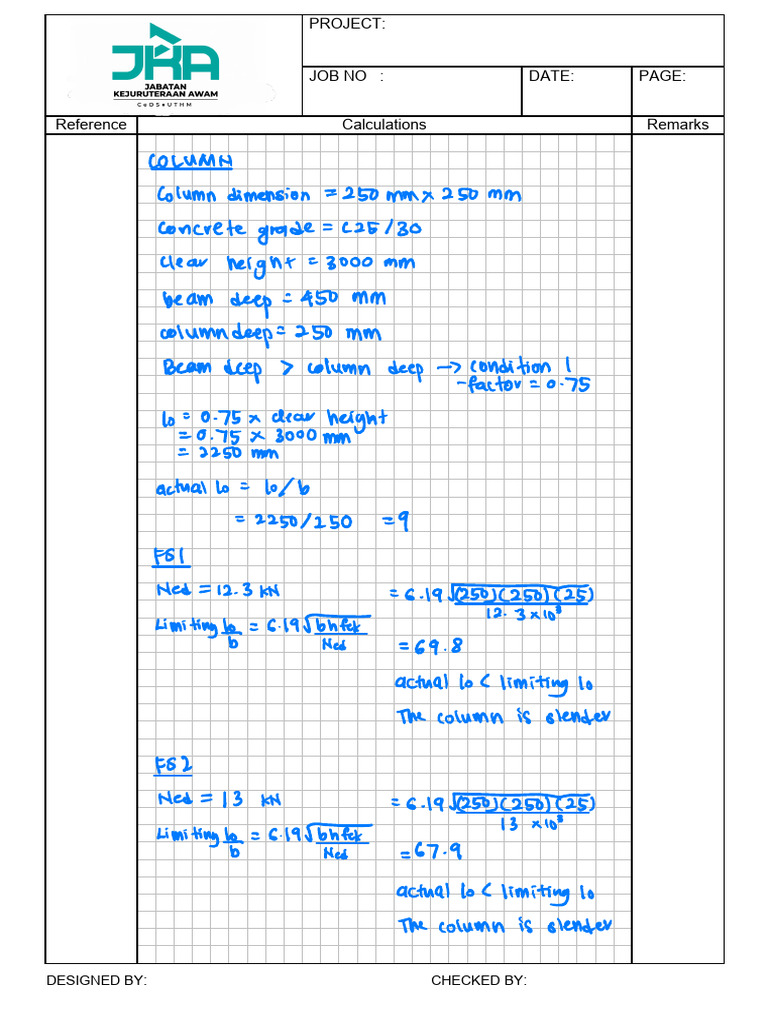 JKA
JABATAN
KEJURUTERAAN AWAM
CeDS●UTHM
PROJECT:
JOB NO :
DATE:
PAGE:
Reference
Calculations
Remarks
COLUMN
Column dimension = 250 mm x 250 mm
Concrete grade = C25/30
clear height = 3000 mm
beam deep = 450 mm
column deep = 250 mm
Beam deep > column deep → condition 1
- factor = 0.75
lo = 0.75 x clear height
= 0.75 x 3000 mm
= 2250 mm
actual lo = lo/b
= 2250/250 = 9
FS1
Ned = 12.3 KN
Limiting lo/b = 6.19√bh fck/Ned
= 6.19√(250)(250)(25)/12.3x10³
= 69.8
actual lo < limiting lo
The column is slender
FS2
Ned = 13 KN
Limiting lo/b = 6.19√bh fck/Ned
= 6.19√(250)(250)(25)/13 x10³
= 67.9
actual lo < limiting lo
The column is slender
DESIGNED BY:
CHECKED BY: